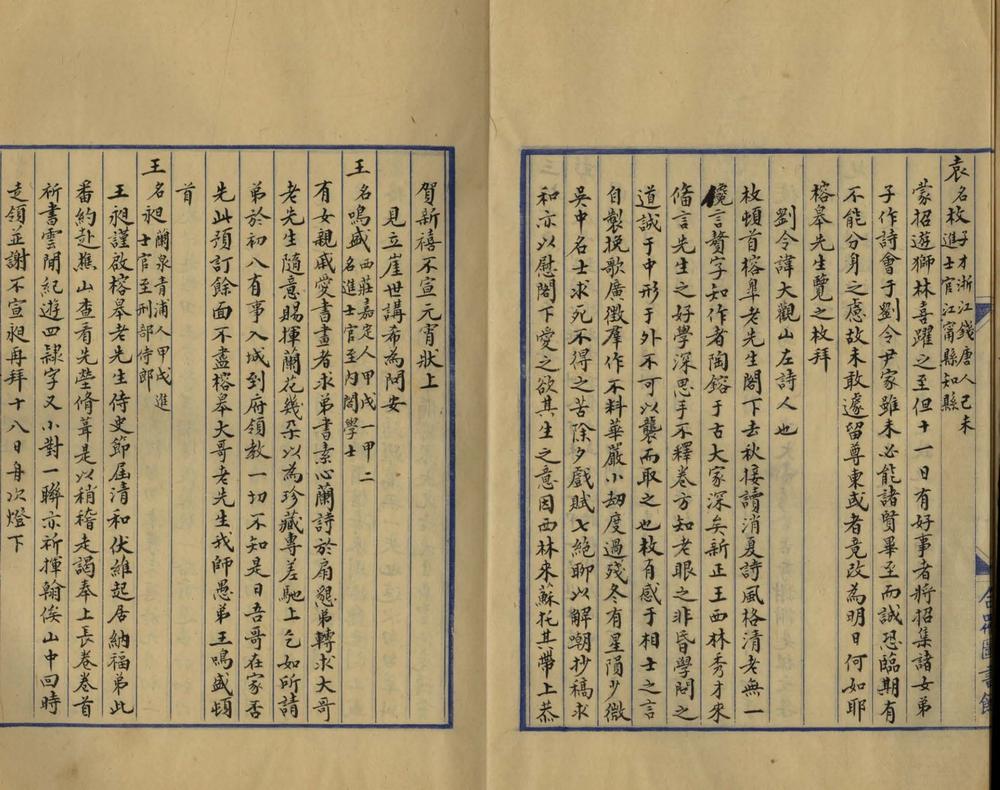 袁名枚子才浙江錢唐人己未
進士官江甯縣知縣
蒙招遊獅林喜躍之至但十一日有好事者將招集諸女弟
子作詩會于劉令尹家雖未必能諸賢畢至而誠恐臨期有
不能分身之慮故未敢遽留尊柬或者竟改為明日何如耶
榕皋先生覽之枚拜
劉令諱大觀山左詩人也
枚頓首榕皋老先生閣下去秋接讀消夏詩風格清老無一
儳言贅字知作者陶鎔于古大家深矣新正王西林秀才來
備言先生之好學深思手不釋卷方知老眼之非昏學問之
道誠于中形于外不可以襲而取之也枚有感于相士之言
自製挽歌廣徵羣作不料華嚴小劫度過殘冬有星隕少微
吳中名士求死不得之苦除夕戲賦七絕聊以解嘲抄稿求
和亦以慰閣下愛之欲其生之意因西林來蘇托其帶上恭
賀新禧不宣元宵狀上
見立崖世講希為問安
王名鳴盛西莊嘉定人甲戌一甲二
名進士官至內閣學士
有女親戚愛書畫者求弟書素心蘭詩於扇懇弟轉求大哥
老先生隨意賜揮蘭花幾朵以為珍藏專差馳上乞如所請
弟於初八有事入城到府領教一切不知是日吾哥在家否
先此預訂餘面不盡榕皋大哥老先生我師愚弟王鳴盛頓
首
王名昶蘭泉青浦人甲戌進
士官至刑部侍郎
王昶謹啟榕皋老先生侍史節屆清和伏維起居納福弟此
番約赴樵山查看先塋脩葺是以稍稽走謁奉上長卷卷首
祈書雲閒紀遊四隸字又小對一聯亦祈揮翰俟山中回時
走領並謝不宣昶再拜十八日舟次燈下